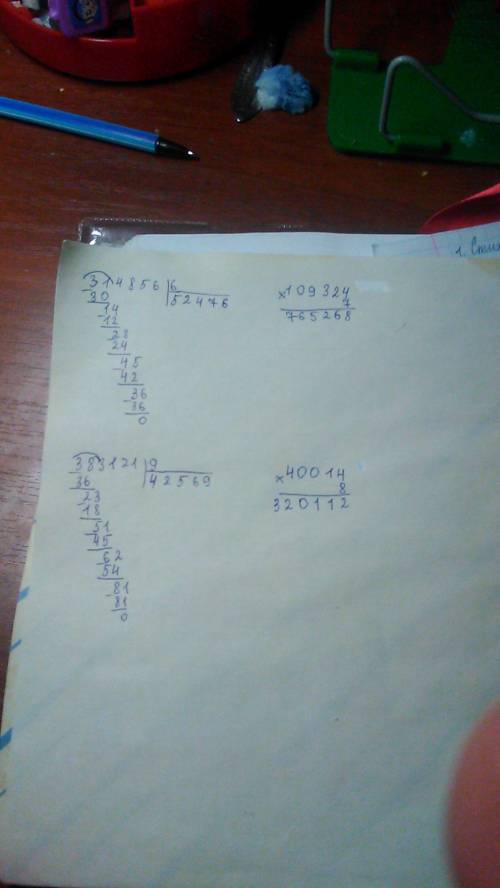 1. Стих
314856 6
30 52476
14
12
28
24
45
42
36
36
0
×109324
7
765268
383121 9
36 42569
23
18
51
45
62
54
81
81
0
×40014
8
320112